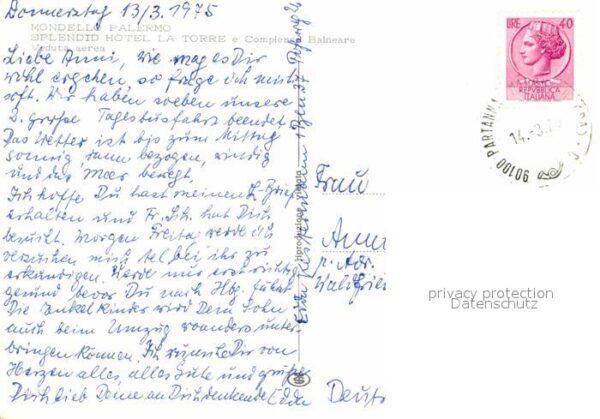 Donnerstag 13/3.1975
MONDELLO PALERMO
SPLENDID HÔTEL LA TORRE e Complesso Balneare
Veduta aerea
Liebe Anni, wie mag es Dir
wohl ergehen, so frage ich mich
oft. Wir haben soeben unsere
2. große Tagesbusfahrt beendet
Das Wetter ist bis zum Mittag
sonnig, dann bezogen, windig
und das Meer bewegt.
Ich hoffe Du hast meinen L. Brief
erhalten und Fr. hat Dich
besucht. Morgen Freitag werde ich
versuchen mich tel. bei ihr zu
erkundigen. Werde mir erst richtig
gesund bevor Du nach Hbg. fährst
Die Enkelkinder wird Dein Sohn
auch beim Umzug woanders unter
bringen können. Ich wünsche Dir von
Herzen alles alles Gute und grüße
Dich lieb Deine an Dich denkende Edda
Riproduzione vietata
LIRE 40
REPVBBLICA
ITALIANA
90100 PARTANNA
14.-3.75
Frau
Anni
Waldfrie
Deuts
privacy protection
Datenschutz